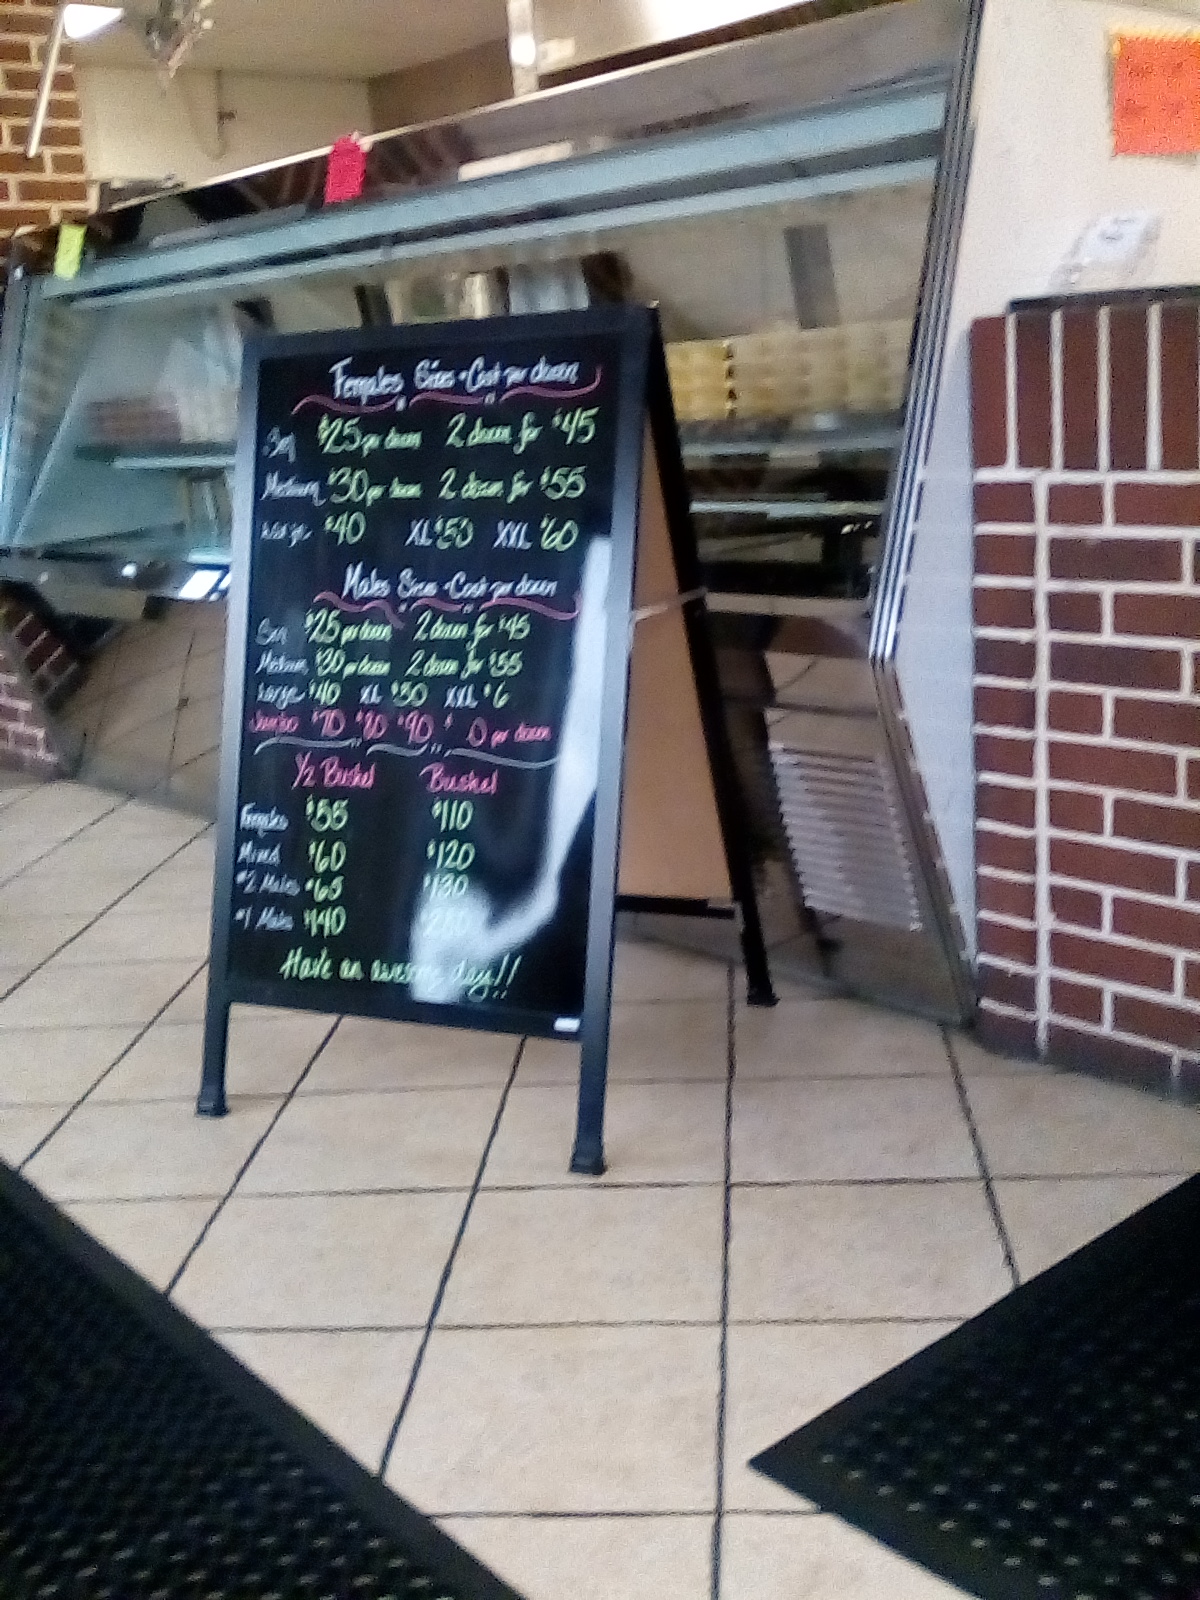 Females Sizes • Cost per dozen
$25 per dozen 2 dozen for $45
Medium $30 per dozen 2 dozen for $55
Large $40 XL $50 XXL $60
Males Sizes • Cost per dozen
$25 per dozen 2 dozen for $45
Medium $30 per dozen 2 dozen for $55
Large $40 XL $50 XXL $6
Jumbo $70 $80 $90 $ 0 per dozen
1/2 Bushel Bushel
Females $55 $110
Mixed $60 $120
#2 Males $65 $130
#1 Males $140 $280
Have an awesome day!!